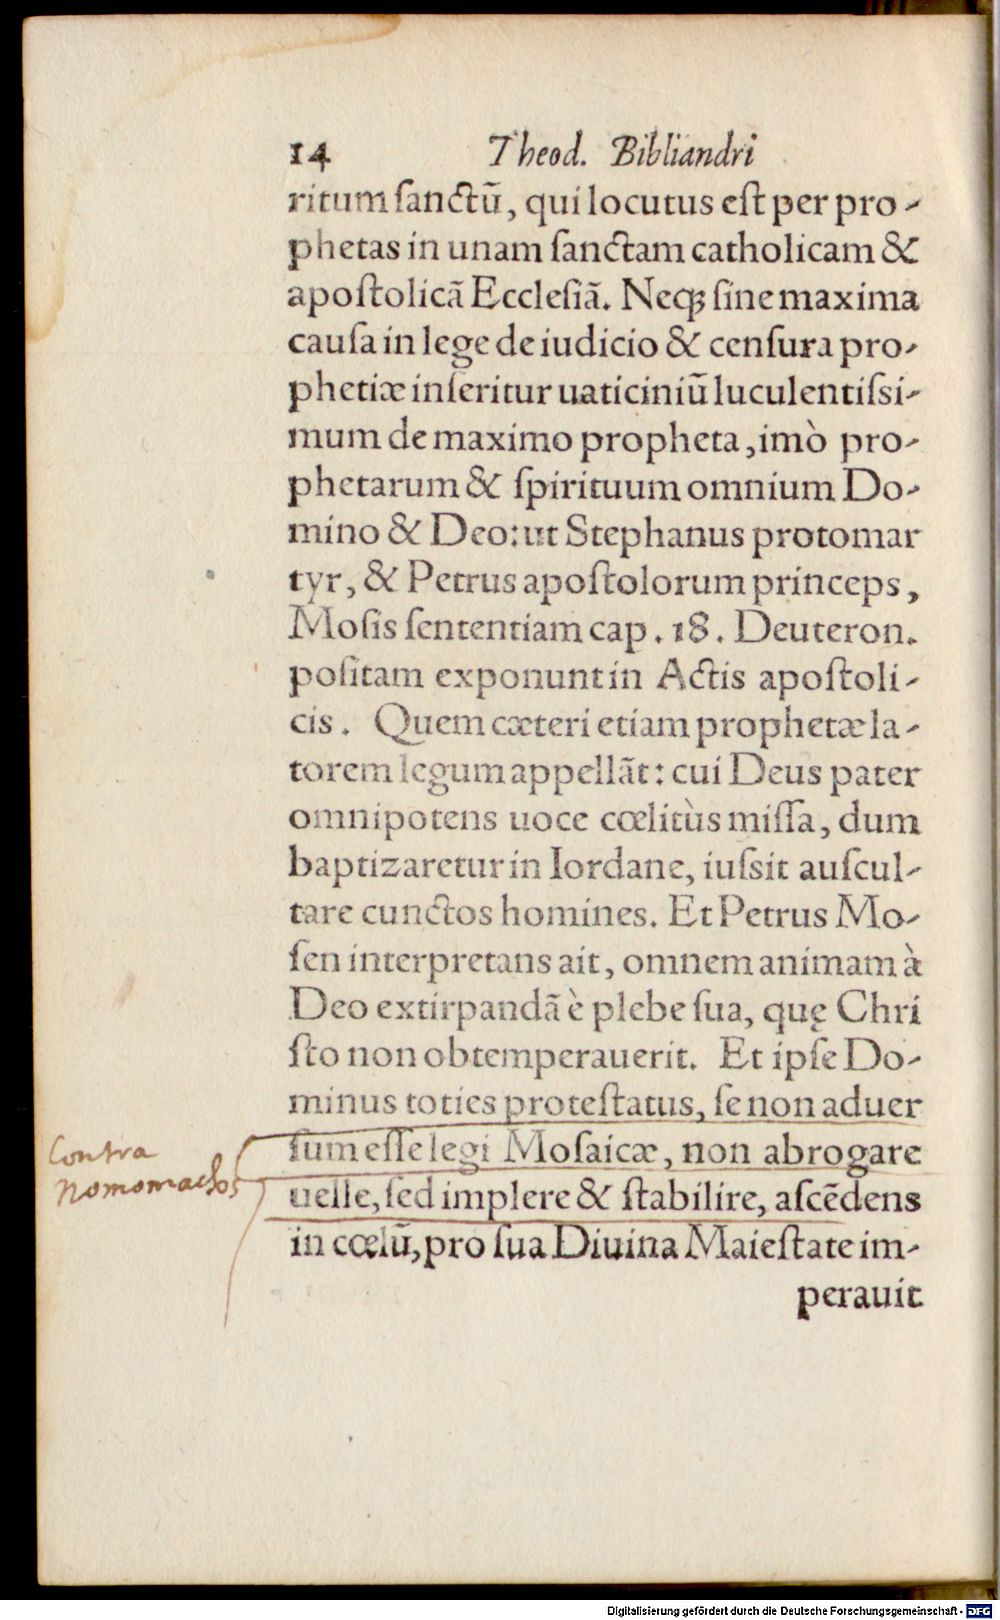 14 Theod. Bibliandri
ritum ſanctũ, qui locutus eſt per pro-
phetas in unam ſanctam catholicam &
apoſtolicã Eccleſiã. Neqꝫ ſine maxima
cauſa in lege de iudicio & cenſura pro-
phetiæ inſeritur uaticiniũ luculentiſsi-
mum de maximo propheta, imò pro-
phetarum & ſpirituum omnium Do-
mino & Deo: ut Stephanus protomar
tyr, & Petrus apoſtolorum princeps,
Moſis ſententiam cap. 18. Deuteron.
poſitam exponunt in Actis apoſtoli-
cis. Quem cæteri etiam prophetæ la-
torem legum appellãt: cui Deus pater
omnipotens uoce cœlitùs miſſa, dum
baptizaretur in Iordane, iuſsit auſcul-
tare cunctos homines. Et Petrus Mo-
ſen interpretans ait, omnem animam à
Deo extirpandã è plebe ſua, quę Chri
ſto non obtemperauerit. Et ipſe Do-
minus toties proteſtatus, ſe non aduer
ſum eſſe legi Moſaicæ, non abrogare
uelle, ſed implere & ſtabilire, aſcẽdens
in cœlũ, pro ſua Diuina Maieſtate im-
perauit
Contra
Nomomachos
Digitalisierung gefördert durch die Deutsche Forschungsgemeinschaft - DFG